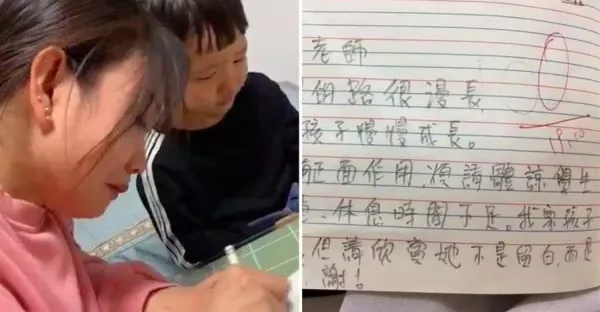 老師
的路很漫長,
孩子慢慢成長。
正面作用,煩請體諒學生
休息時間不足。我家孩子
但請欣賞她不是留白,而是
謝!